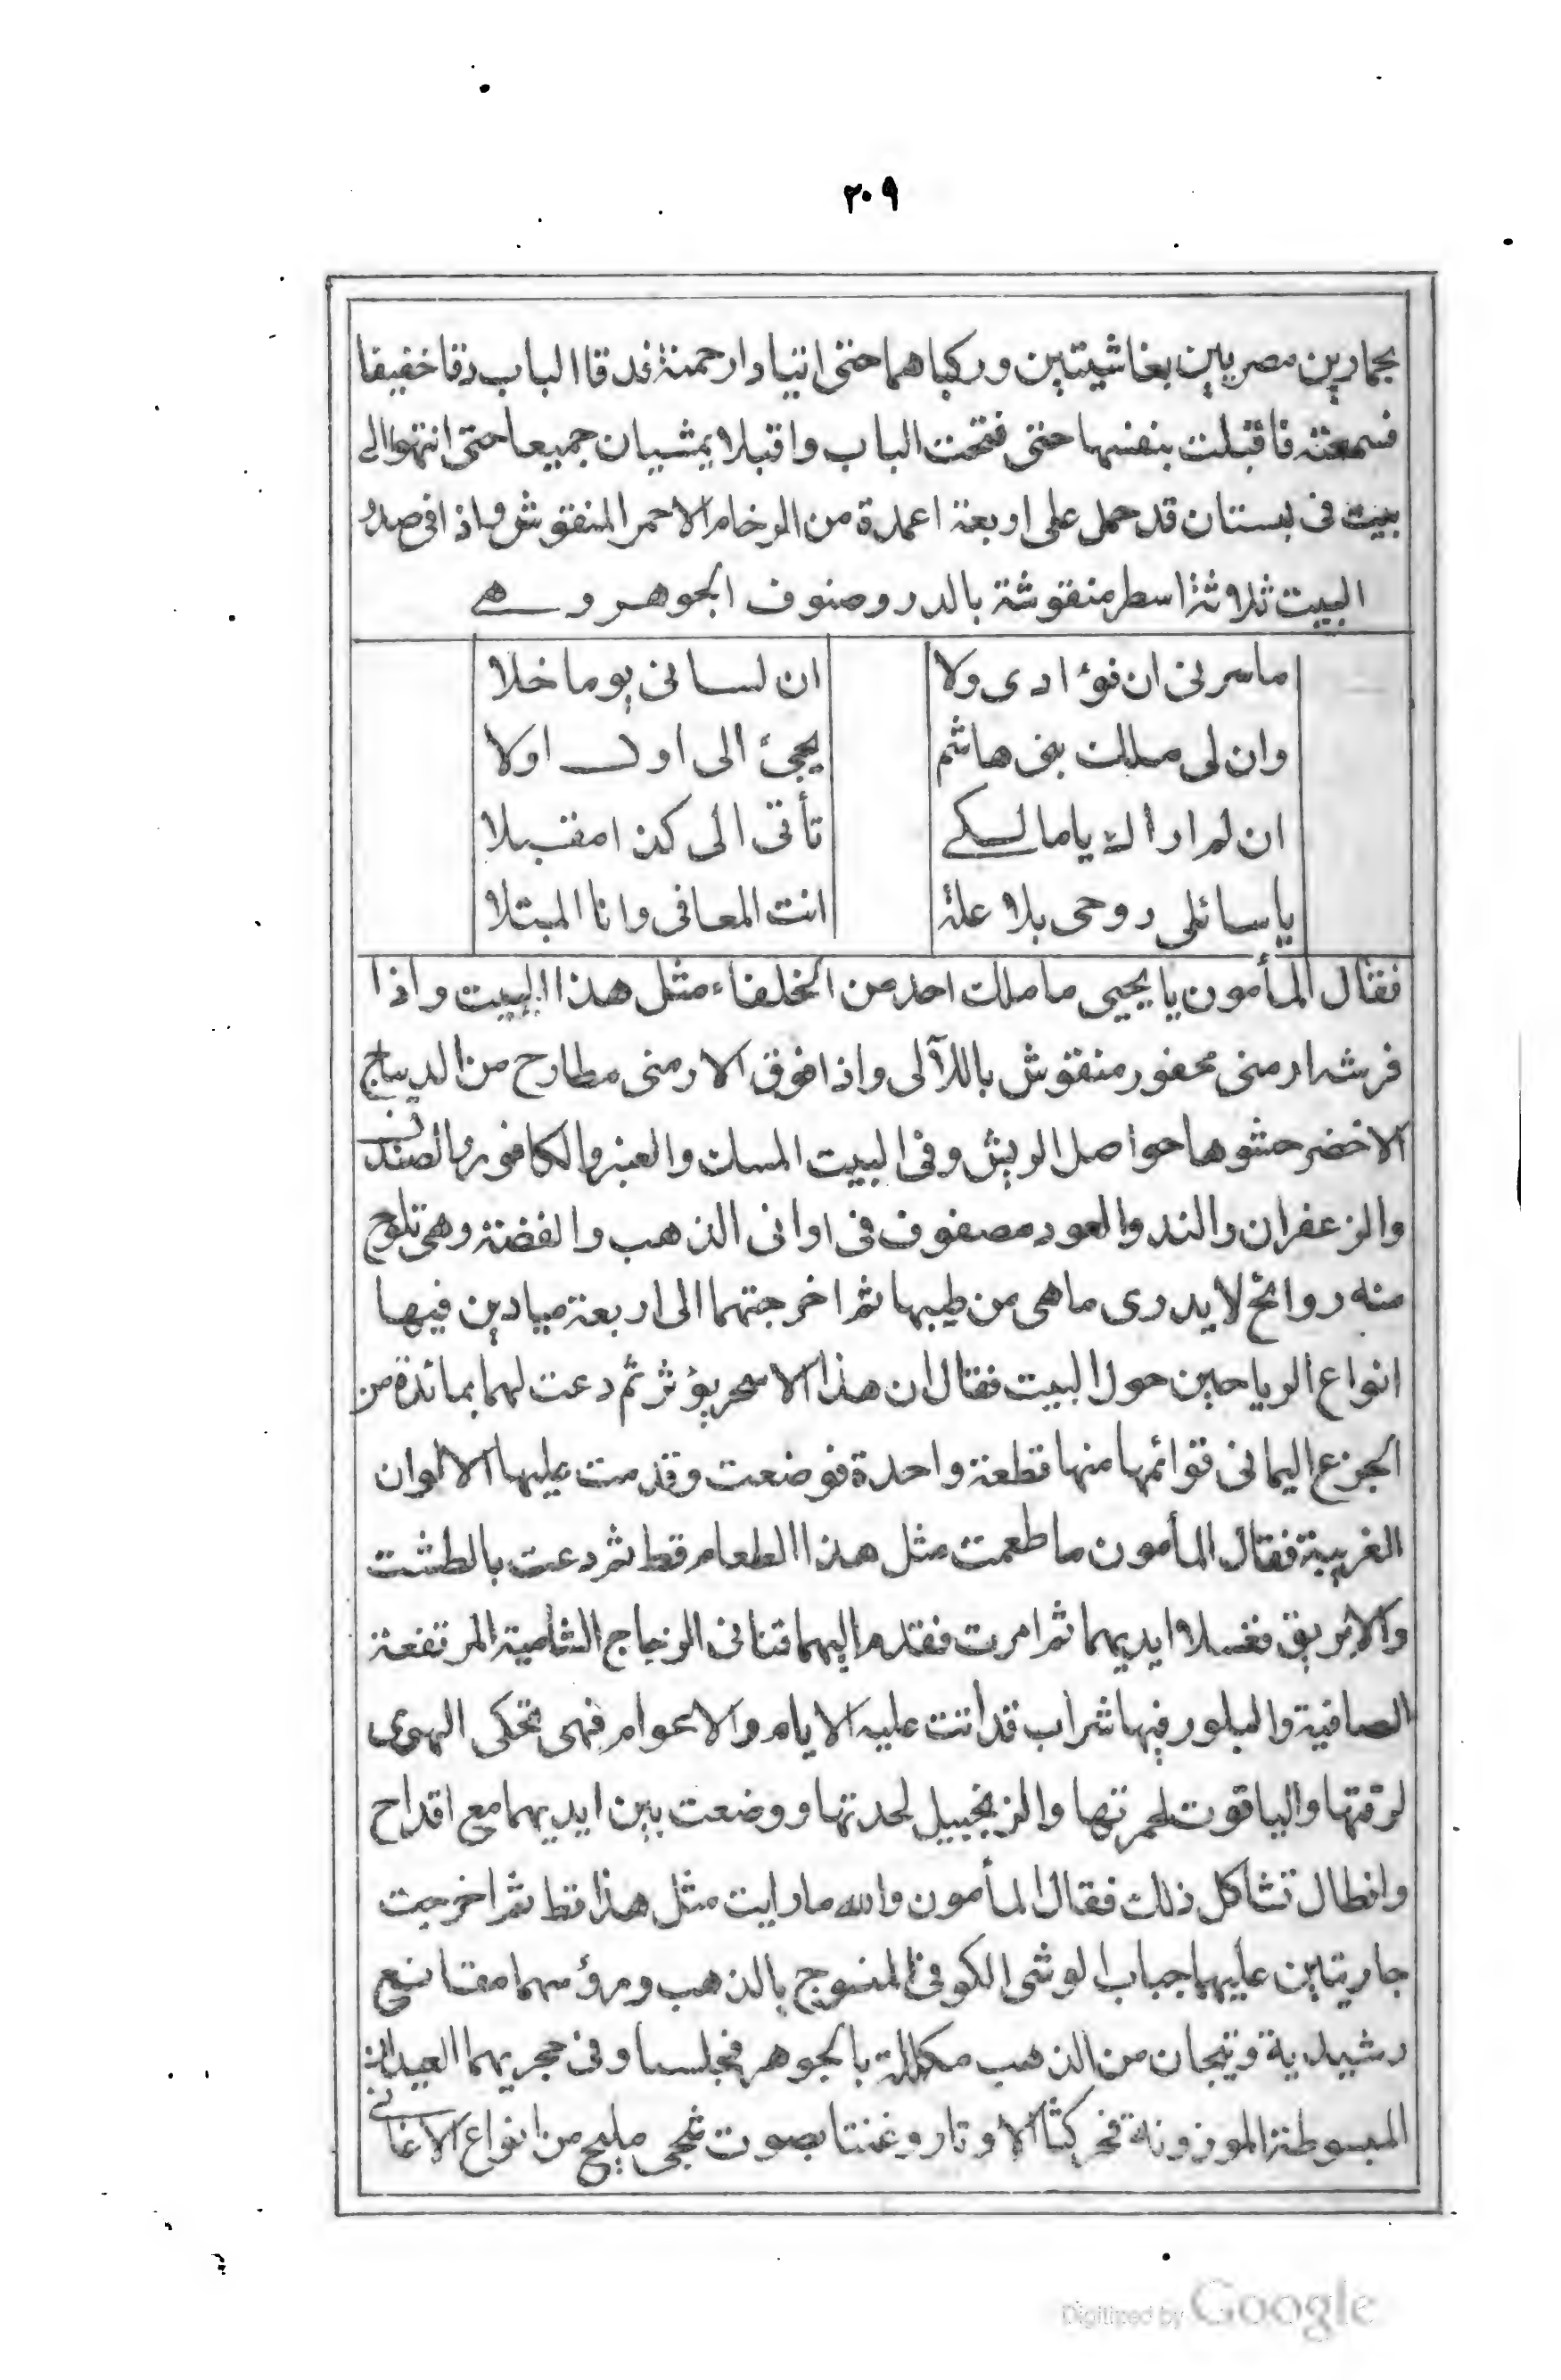 ٢٠٩
بحمارين مصريين بغاشيتين وركباهما حتى اتيا دار حمنة فدقا الباب دقا خفيفا
فسمعته فاقبلت بنفسها حتى فتحت الباب واقبلا يمشيان جميعا حتى انتهوا الى
بيت فى بستان قد حمل على اربعة اعمدة من الرخام الاحمر المنقوش واذا فى صدر
البيت ثلاثة اسطر منقوشة بالدر وصنوف الجوهر وهى
ما سرنى ان فؤادى ولا ان لسانى يوما خلا
وان لى ملك بنى هاشم يجئ الى اول اولا
ان لم اراك يا مالكى تأتى الى كذا مقبلا
يا سائلى روحى بلا علة انت المعافى وانا المبتلا
فقال المأمون يا يحيى ما ملك احد من الخلفاء مثل هذا البيت واذا
فرشه ارمنى محفور منقوش باللآلى واذا فوق الارمنى مطارح من الديباج
الاخضر حشوها حواصل الريش وفى البيت المسك والعنبر والكافور والصندل
والزعفران والند والعود مصفوف فى اوانى الذهب والفضة وهى تلوح
منه روائح لا يدرى ما هى من طيبها ثم اخرجتهما الى اربعة ميادين فيها
انواع الرياحين حول البيت فقال ان هذا الا سحر يؤثر ثم دعت لهما بمائدة من
الجزع اليمانى قوائمها منها قطعة واحدة فوضعت وقدمت عليها الالوان
الغريبة فقال المأمون ما طعمت مثل هذا الطعام قط ثم دعت بالطشت
والابريق فغسلا ايديهما ثم امرت فقدم اليهما قنانى الزجاج الشامية المرتفعة
الصافية والبلور فيها شراب قد اتت عليه الايام والاعوام فهى تحكى الهوى
لرقتها والياقوت لحمرتها والزنجبيل لحدتها ووضعت بين ايديهما مع اقداح
وانطال تشاكل ذلك فقال المأمون والله ما رايت مثل هذا قط ثم اخرجت
جاريتين عليهما جباب الوشى الكوفى المنسوج بالذهب ورؤسهما مقانع
رشيدية وتيجان من الذهب مكللة بالجوهر فجلسا وفى حجريهما العيدان
المبسوطة الموزونة فحركتا الاوتار وغنتا بصوت شجى مليح من انواع الاغانى
Digitized by Google